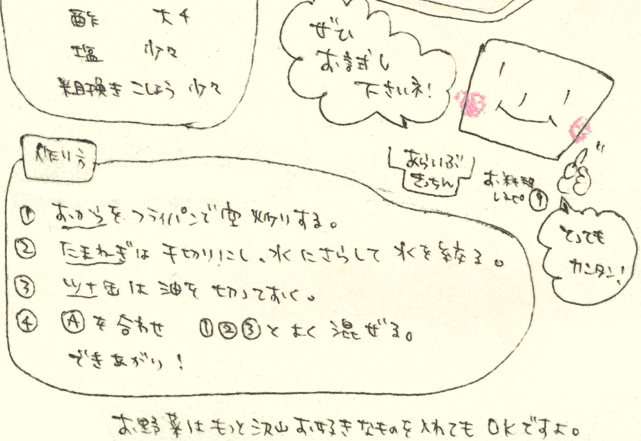 酢 大4
塩 少々
粗挽きこしょう 少々
ぜひ
お試し
下さいネ!
あらいぶ
きっちん
お料理
レシピ⑨
とっても
カンタン!
作り方
① おからをフライパンで空炒りする。
② たまねぎは千切りにし、水にさらして水を絞る。
③ ツナ缶は油を切っておく。
④ Ⓐを合わせ ①②③とよく混ぜる。
できあがり!
お野菜はもっと沢山お好きなものを入れてもOKですよ。